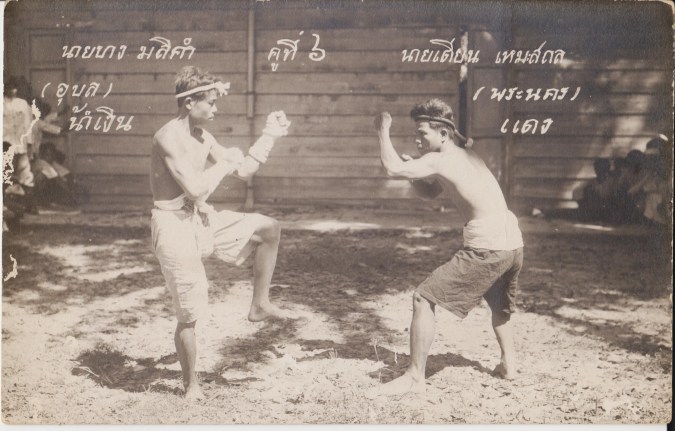 นายบาง มสิคำ
(อุบล)
น้ำเงิน
คู่ที่ ๖
นายเดียน เหมสถล
(พระนคร)
แดง